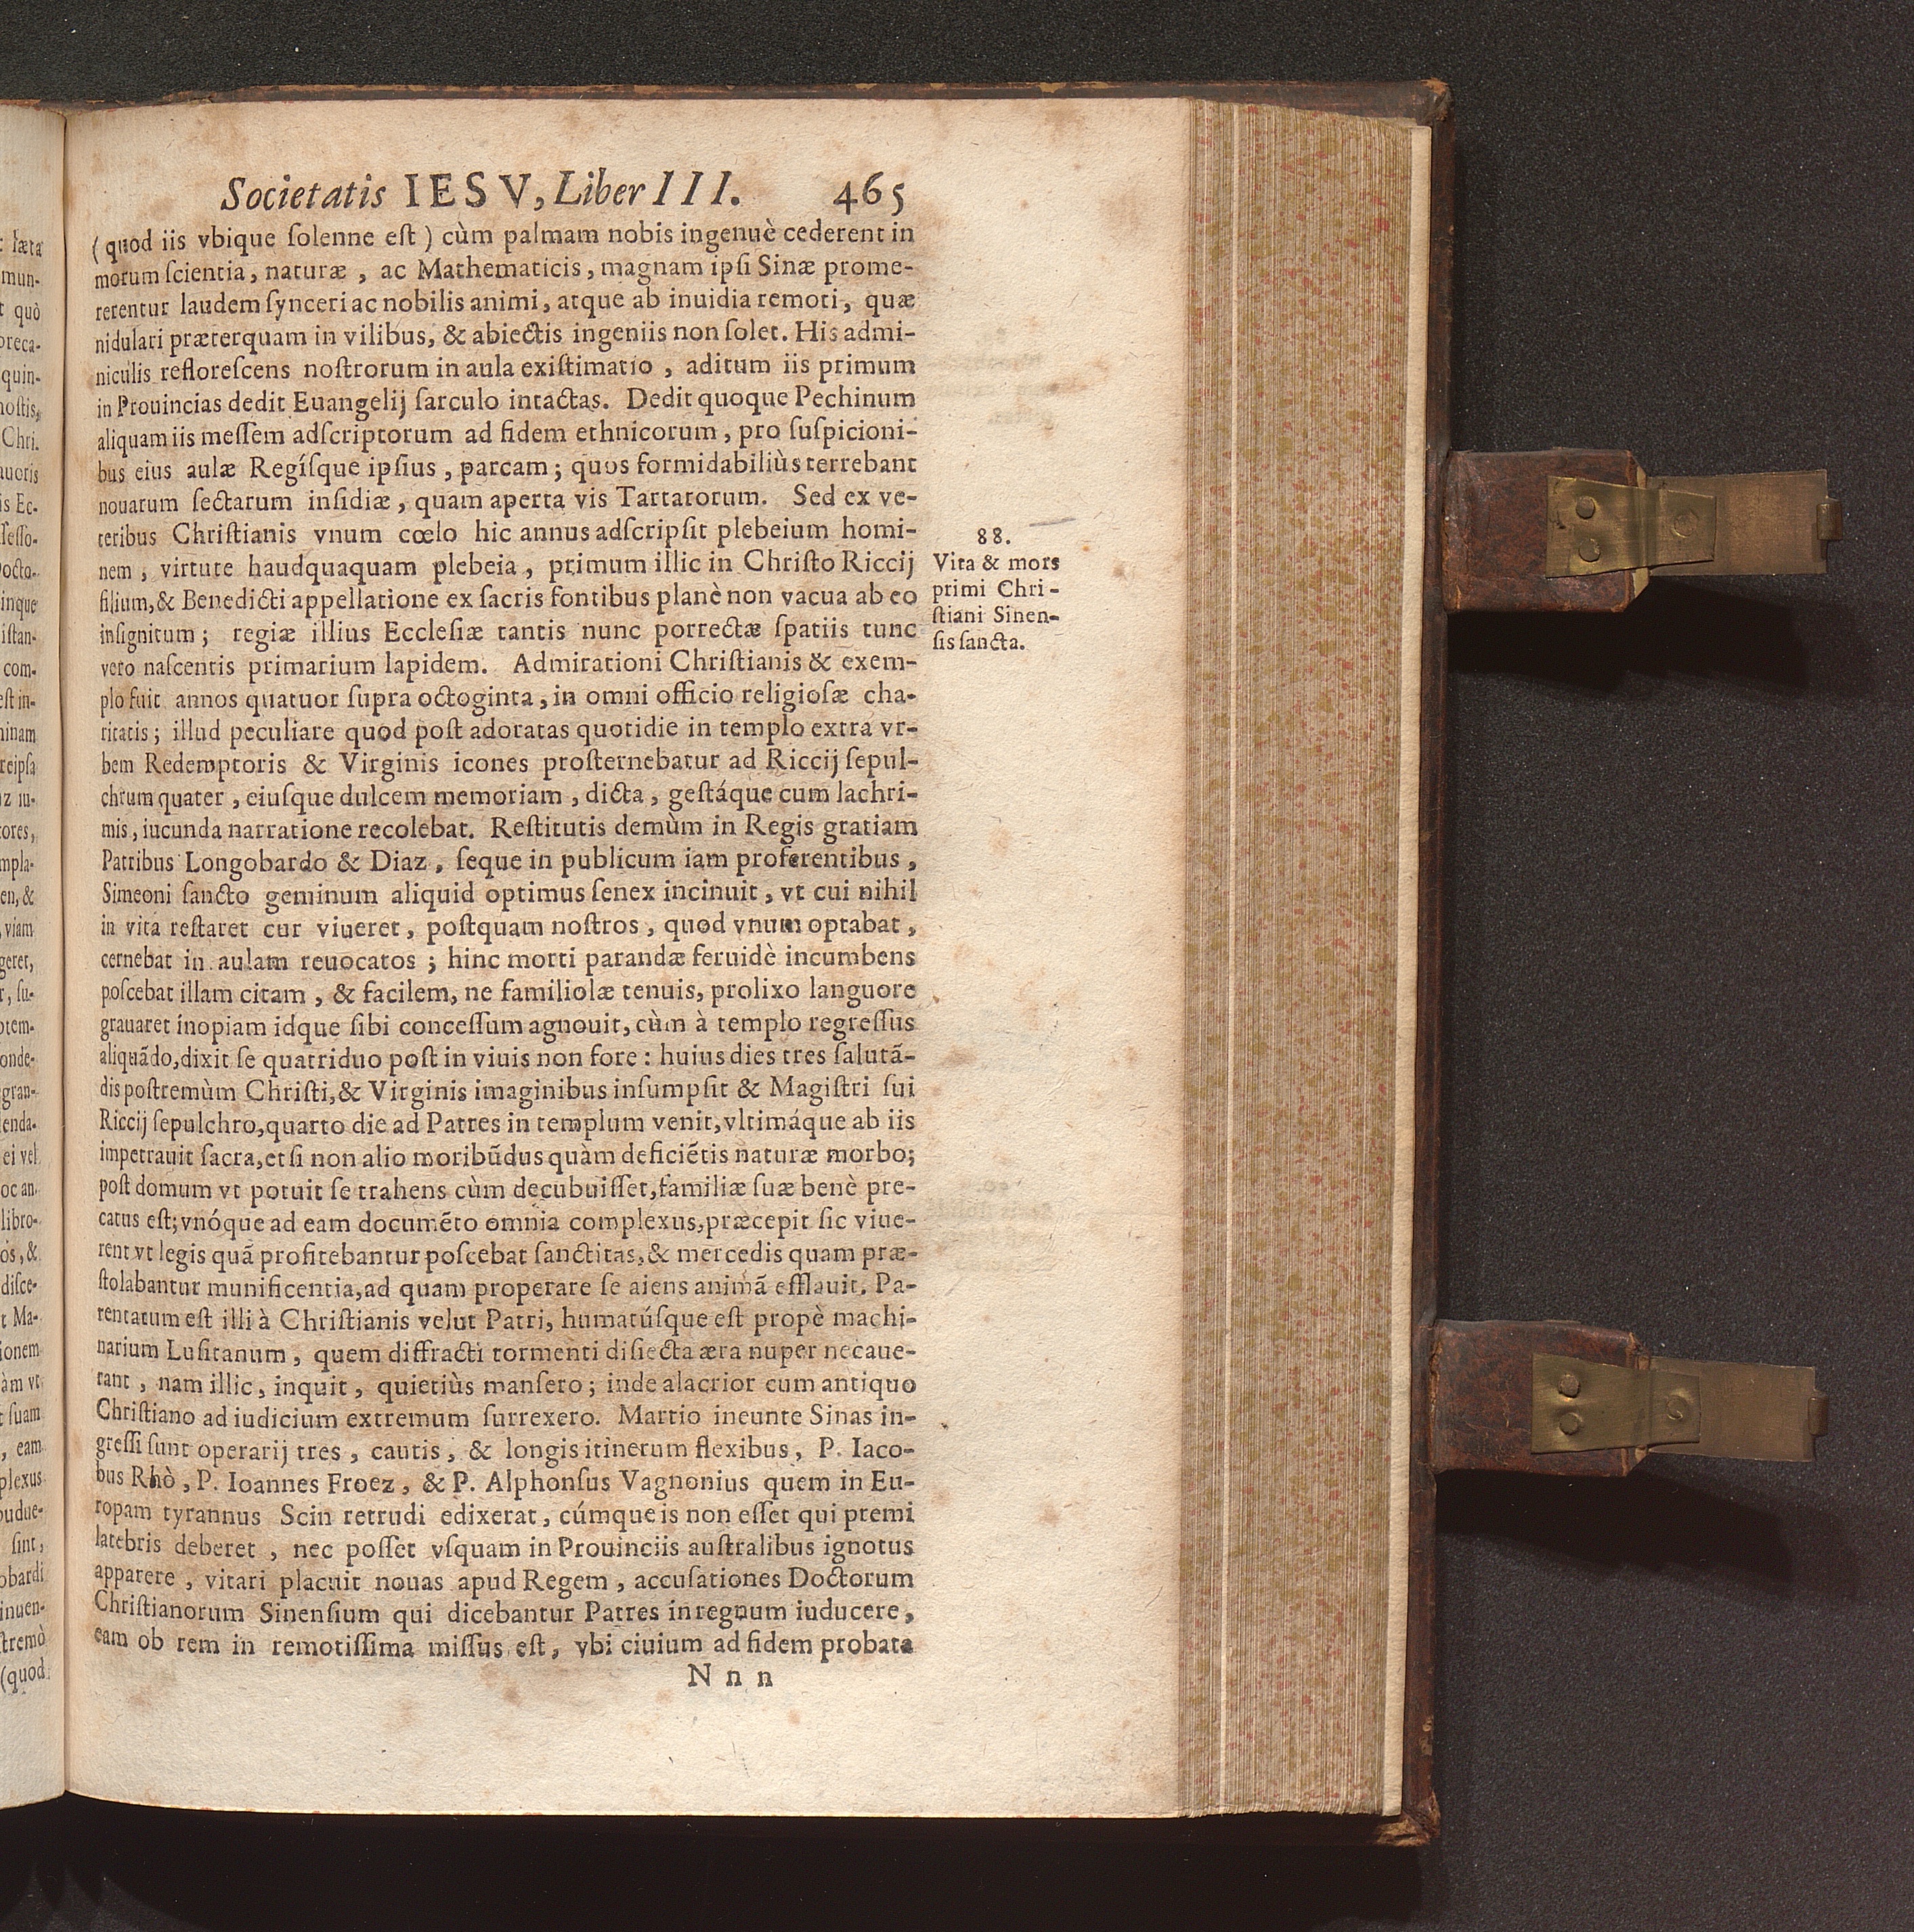 Societatis IESV, Liber III. 465
(quod iis vbique ſolenne eſt) cùm palmam nobis ingenuè cederent in
morum ſcientia, naturæ, ac Mathematicis, magnam ipſi Sinæ prome-
rerentur laudem ſynceri ac nobilis animi, atque ab inuidia remoti, quæ
nidulari præterquam in vilibus, & abiectis ingeniis non ſolet. His admi-
niculis refloreſcens noſtrorum in aula exiſtimatio, aditum iis primum
in Prouincias dedit Euangelij ſarculo intactas. Dedit quoque Pechinum
aliquam iis meſſem adſcriptorum ad fidem ethnicorum, pro ſuſpicioni-
bus eius aulæ Regíſque ipſius, parcam; quos formidabiliùs terrebant
nouarum ſectarum inſidiæ, quam aperta vis Tartarorum. Sed ex ve-
teribus Chriſtianis vnum cœlo hic annus adſcripſit plebeium homi-
nem, virtute haudquaquam plebeia, primum illic in Chriſto Riccij
filium, & Benedicti appellatione ex ſacris fontibus planè non vacua ab eo
inſignitum; regiæ illius Eccleſiæ tantis nunc porrectæ ſpatiis tunc
vero naſcentis primarium lapidem. Admirationi Chriſtianis & exem-
plo fuit annos quatuor ſupra octoginta, in omni officio religioſæ cha-
ritatis; illud peculiare quod poſt adoratas quotidie in templo extra vr-
bem Redemptoris & Virginis icones proſternebatur ad Riccij ſepul-
chrum quater, eiuſque dulcem memoriam, dicta, geſtáque cum lachri-
mis, iucunda narratione recolebat. Reſtitutis demùm in Regis gratiam
Patribus Longobardo & Diaz, ſeque in publicum iam proferentibus,
Simeoni ſancto geminum aliquid optimus ſenex incinuit, vt cui nihil
in vita reſtaret cur viueret, poſtquam noſtros, quod vnum optabat,
cernebat in aulam reuocatos; hinc morti parandæ feruidè incumbens
poſcebat illam citam, & facilem, ne familiolæ tenuis, prolixo languore
grauaret inopiam idque ſibi conceſſum agnouit, cùm à templo regreſſus
aliquãdo, dixit ſe quatriduo poſt in viuis non fore: huius dies tres ſalutã-
dis poſtremùm Chriſti, & Virginis imaginibus inſumpſit & Magiſtri ſui
Riccij ſepulchro, quarto die ad Patres in templum venit, vltimáque ab iis
impetrauit ſacra, etſi non alio moribũdus quàm deficiẽtis naturæ morbo;
poſt domum vt potuit ſe trahens cùm decubuiſſet, familiæ ſuæ benè pre-
catus eſt; vnóque ad eam documẽto omnia complexus, præcepit ſic viue-
rent vt legis quã profitebantur poſcebat ſanctitas, & mercedis quam præ-
ſtolabantur munificentia, ad quam properare ſe aiens animã efflauit. Pa-
rentatum eſt illi à Chriſtianis velut Patri, humatúſque eſt propè machi-
narium Luſitanum, quem diffracti tormenti diſiecta æra nuper necaue-
rant, nam illic, inquit, quietiùs manſero; inde alacrior cum antiquo
Chriſtiano ad iudicium extremum ſurrexero. Martio ineunte Sinas in-
greſſi ſunt operarij tres, cautis, & longis itinerum flexibus, P. Iaco-
bus Rhò, P. Ioannes Froez, & P. Alphonſus Vagnonius quem in Eu-
ropam tyrannus Scin retrudi edixerat, cúmque is non eſſet qui premi
latebris deberet, nec poſſet vſquam in Prouinciis auſtralibus ignotus
apparere, vitari placuit nouas apud Regem, accuſationes Doctorum
Chriſtianorum Sinenſium qui dicebantur Patres in regnum iuducere,
eam ob rem in remotiſſima miſſus eſt, vbi ciuium ad fidem probata
Nnn
88.
Vita & mors
primi Chri-
ſtiani Sinen-
ſis ſancta.